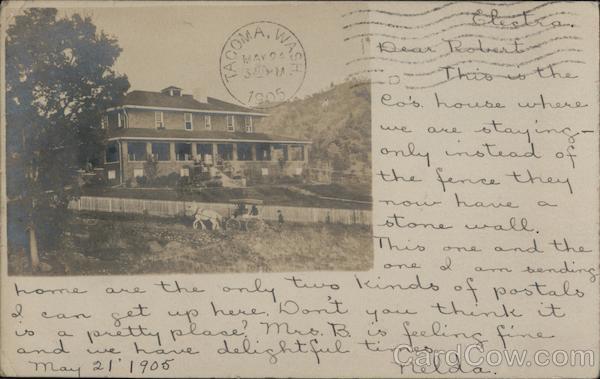 Electra.
Dear Robert
This is the
Co's. house where
we are staying—
only instead of
the fence they
now have a
stone wall.
This one and the
one I am sending
home are the only two kinds of postals
I can get up here. Don't you think it
is a pretty place? Mrs. B. is feeling fine
and we have delightful times.
May 21 1905 Nelda.
TACOMA, WASH.
MAY
1905
CardCow.com